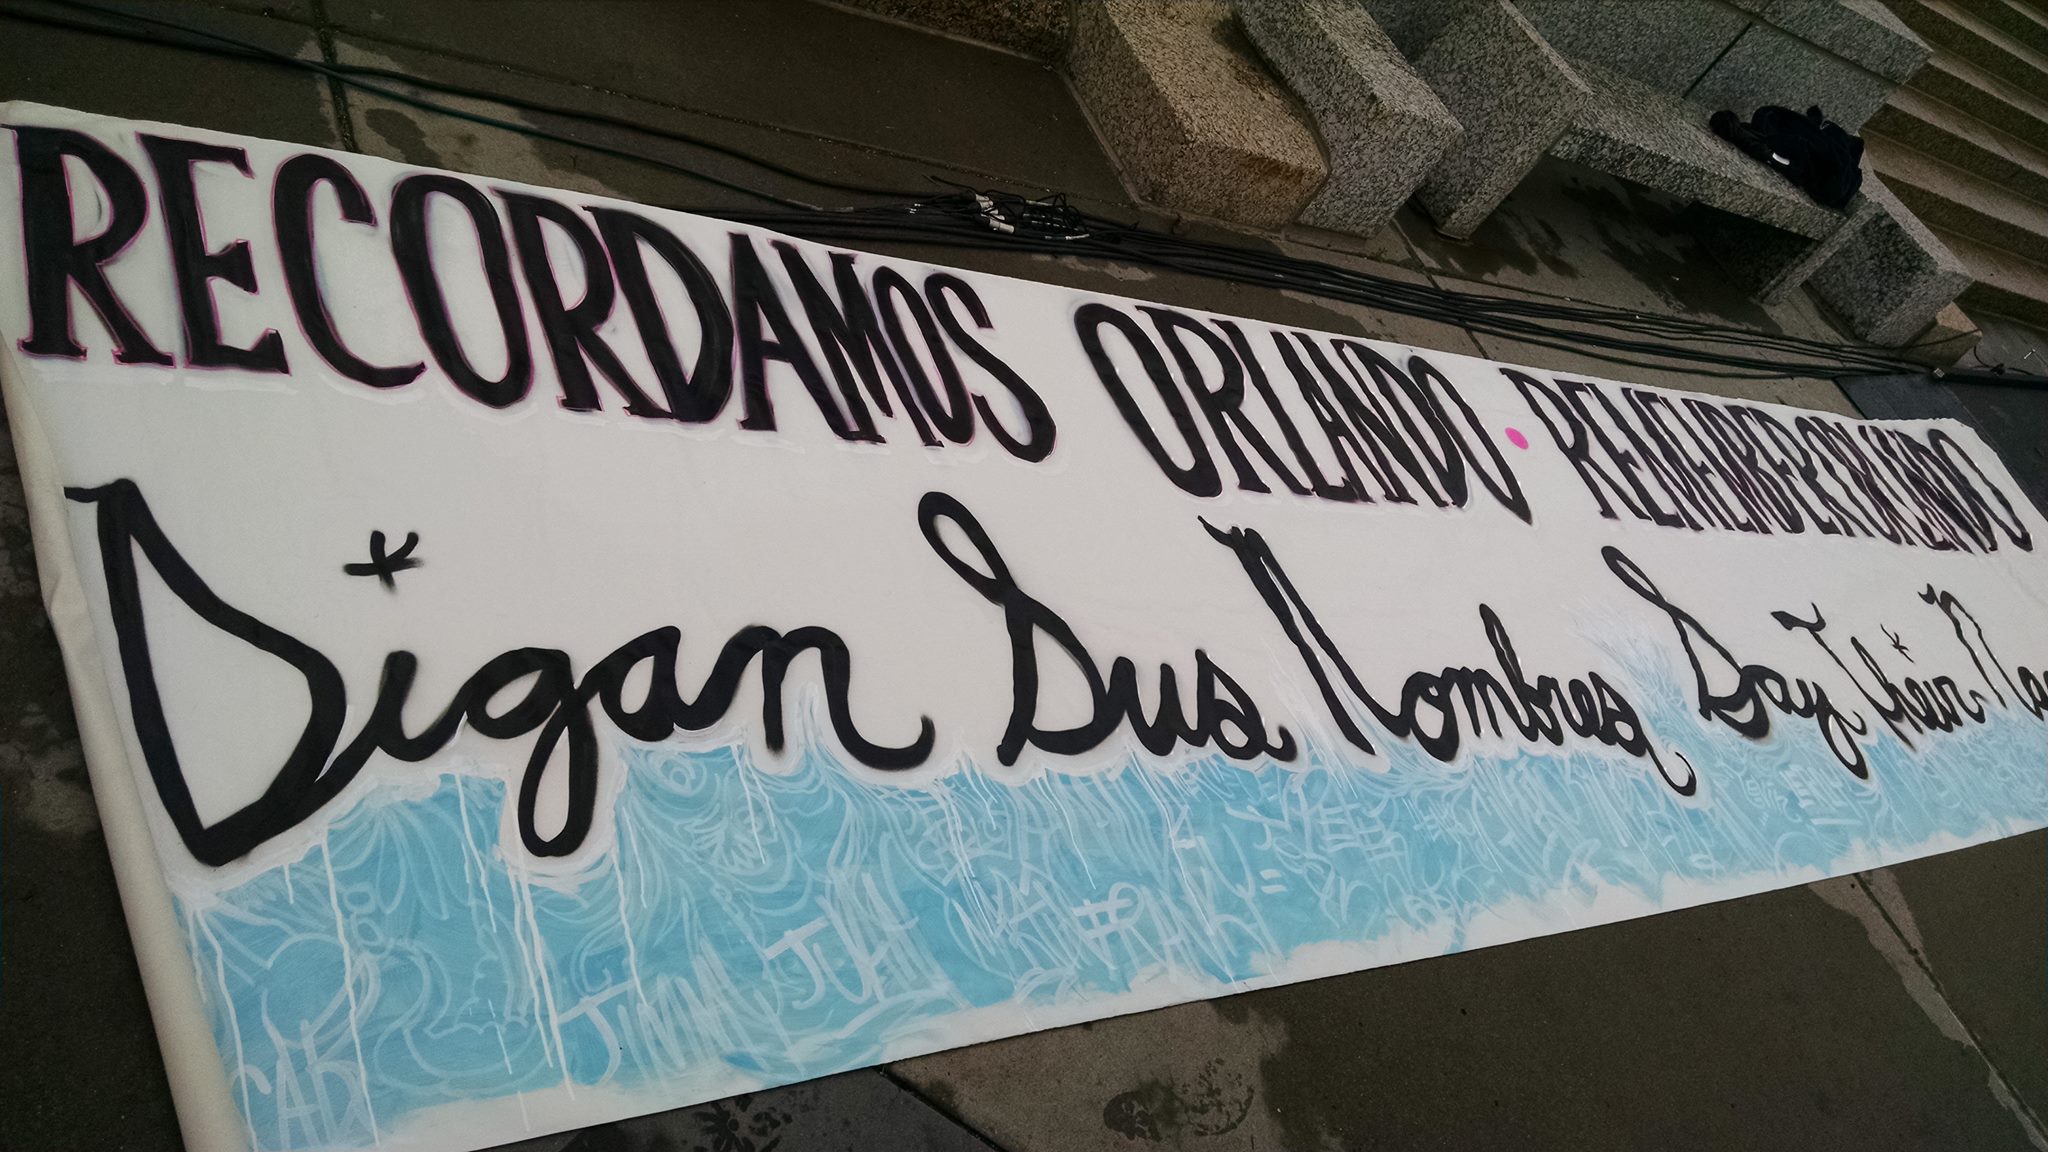 RECORDAMOS ORLANDO • REMEMBER ORLANDO
Digan Sus Nombres Say Their Na
JIMMY JULY